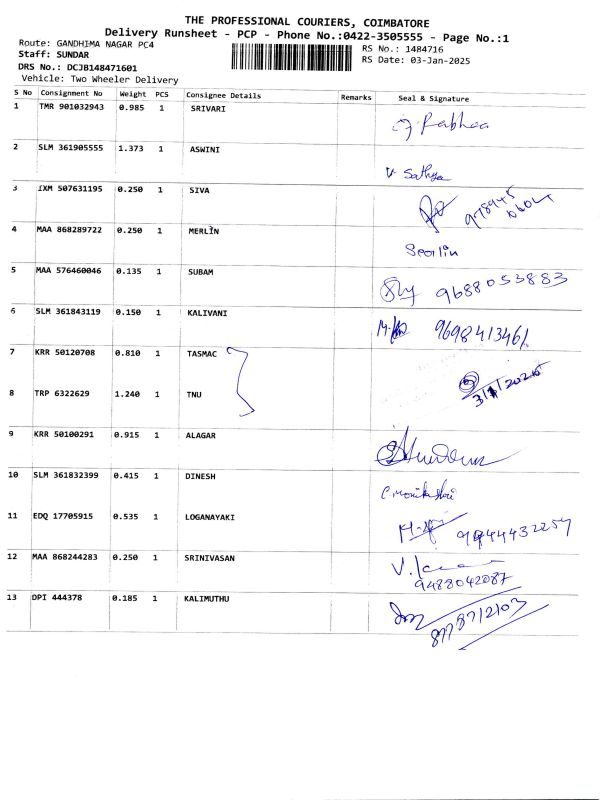 THE PROFESSIONAL COURIERS, COIMBATORE
Delivery Runsheet - PCP - Phone No.:0422-3505555 - Page No.:1
Route: GANDHIMA NAGAR PC4
Staff: SUNDAR
DRS No.: DCJB148471601
Vehicle: Two Wheeler Delivery
RS No.: 1484716
RS Date: 03-Jan-2025
S No Consignment No Weight PCS Consignee Details Remarks Seal & Signature
1 TMR 901032943 0.985 1 SRIVARI
2 SLM 361905555 1.373 1 ASWINI
V Sathya
3 IXM 507631195 0.250 1 SIVA
4 MAA 868289722 0.250 1 MERLIN
5 MAA 576460046 0.135 1 SUBAM
9688053883
6 SLM 361843119 0.150 1 KALIVANI
9698413461
7 KRR 50120708 0.810 1 TASMAC
3/1/2025
8 TRP 6322629 1.240 1 TNU
9 KRR 50100291 0.915 1 ALAGAR
10 SLM 361832399 0.415 1 DINESH
11 EDQ 17705915 0.535 1 LOGANAYAKI
12 MAA 868244283 0.250 1 SRINIVASAN
9488042087
13 DPI 444378 0.185 1 KALIMUTHU
8778712103